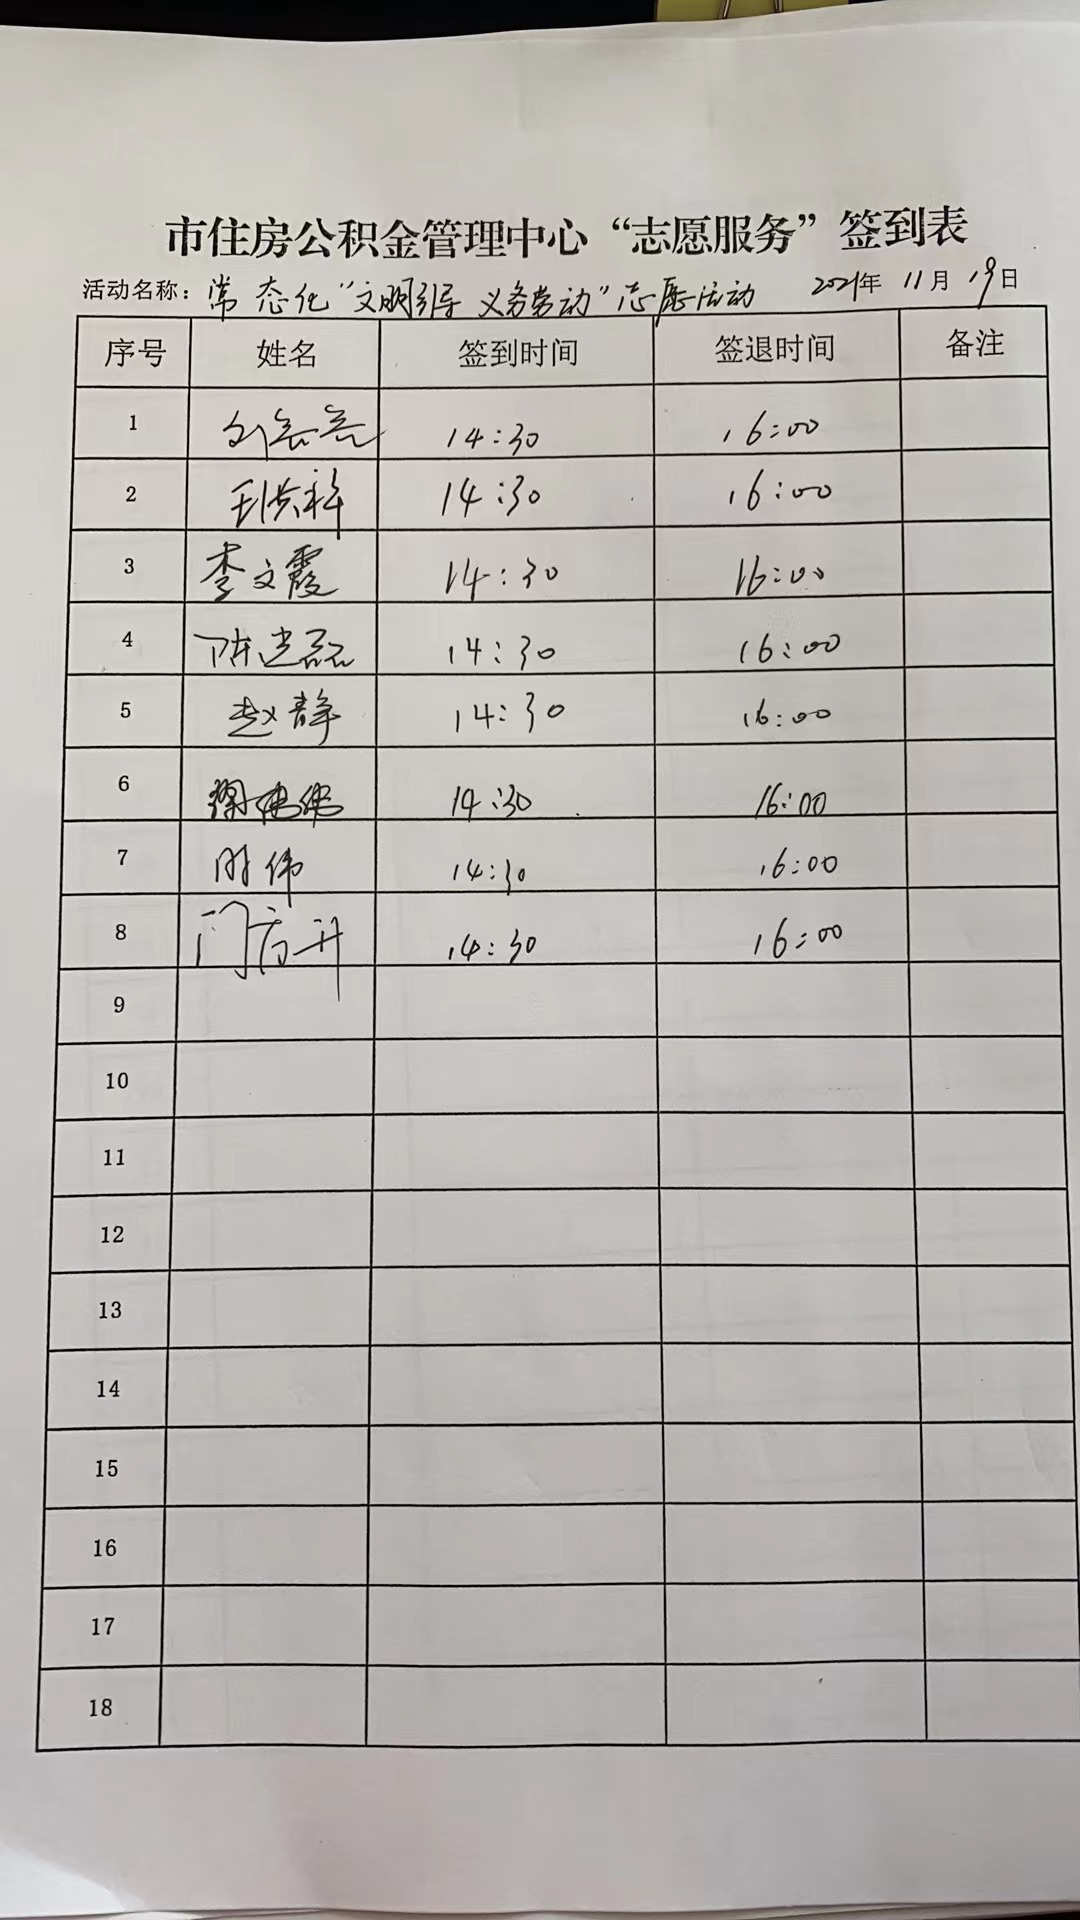 市住房公积金管理中心“志愿服务”签到表
活动名称：常态化“文明引导 义务劳动”志愿活动 2021年 11月 19日
序号 姓名 签到时间 签退时间 备注
1 14:30 16:00
2 14:30 16:00
3 李文霞 14:30 16:00
4 陈建磊 14:30 16:00
5 赵静 14:30 16:00
6 14:30 16:00
7 时伟 14:30 16:00
8 14:30 16:00
9
10
11
12
13
14
15
16
17
18